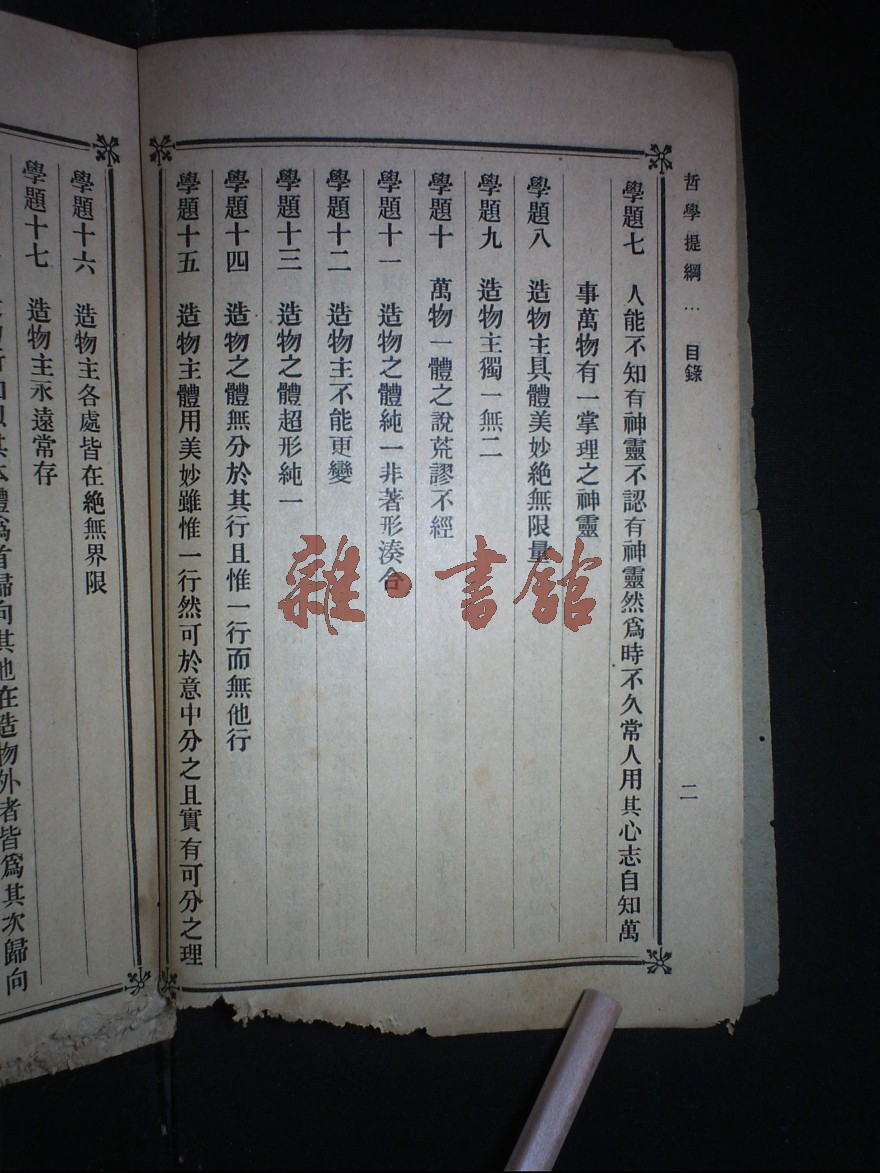 哲學提綱 … 目錄 二
學題七 人能不知有神靈不認有神靈然爲時不久常人用其心志自知萬
事萬物有一掌理之神靈
學題八 造物主具體美妙絶無限量
學題九 造物主獨一無二
學題十 萬物一體之說荒謬不經
學題十一 造物之體純一非著形湊合
學題十二 造物主不能更變
學題十三 造物之體超形純一
學題十四 造物之體無分於其行且惟一行而無他行
學題十五 造物主體用美妙雖惟一行然可於意中分之且實有可分之理
學題十六 造物主各處皆在絶無界限
學題十七 造物主永遠常存
其本體爲首歸向其他在造物外者皆爲其次歸向
雜·書館